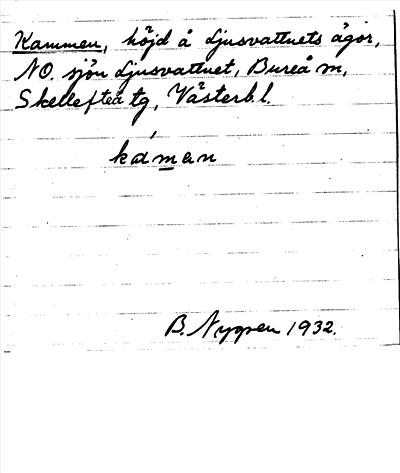 Kammen, höjd å Ljusvattnets ägor,
NO. sjön Ljusvattnet, Bureå m,
Skellefteå tg, Västerb. l.
káman
B. Nygren 1932.